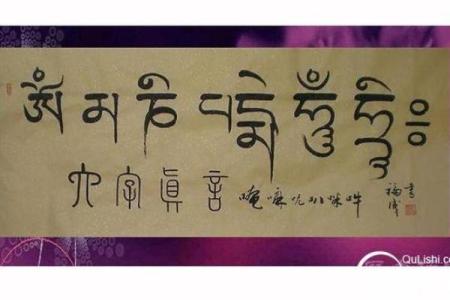 ཨོཾ མ ཎི པ དྨེ ཧཱུྃ ཧྲཱིཿ
六字眞言 唵嘛呢叭咪吽
QuLishi.co